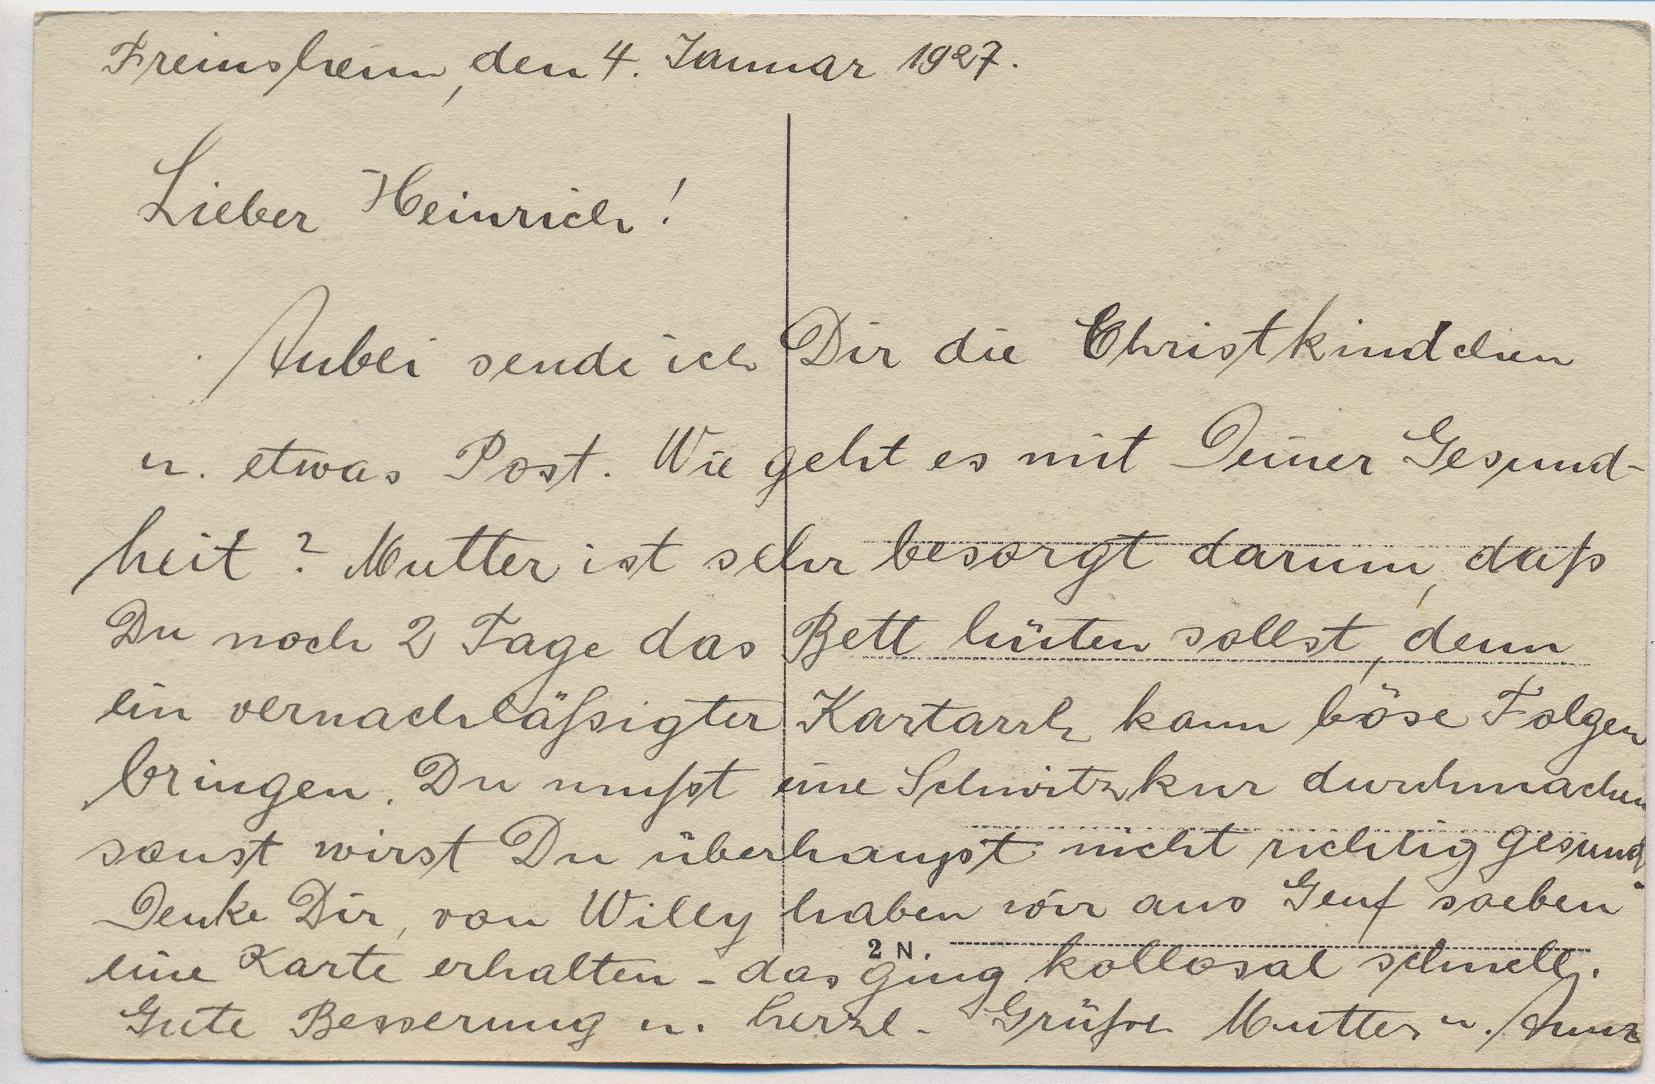 Freinsheim, den 4. Januar 1927.
Lieber Heinrich!
Anbei sende ich Dir die Christkindchen
u. etwas Post. Wie geht es mit Deiner Gesund-
heit? Mutter ist sehr besorgt darum, daß
Du noch 2 Tage das Bett hüten sollst, denn
ein vernachläßigter Kartarrh kann böse Folgen
bringen. Du mußt eine Schwitzkur durchmachen
sonst wirst Du überhaupt nicht richtig gesund.
Denke Dir, von Willy haben wir aus Genf soeben
2 N.
eine Karte erhalten - das ging kollosal schnell.
Gute Besserung u. herzl. Grüße Mutter u.